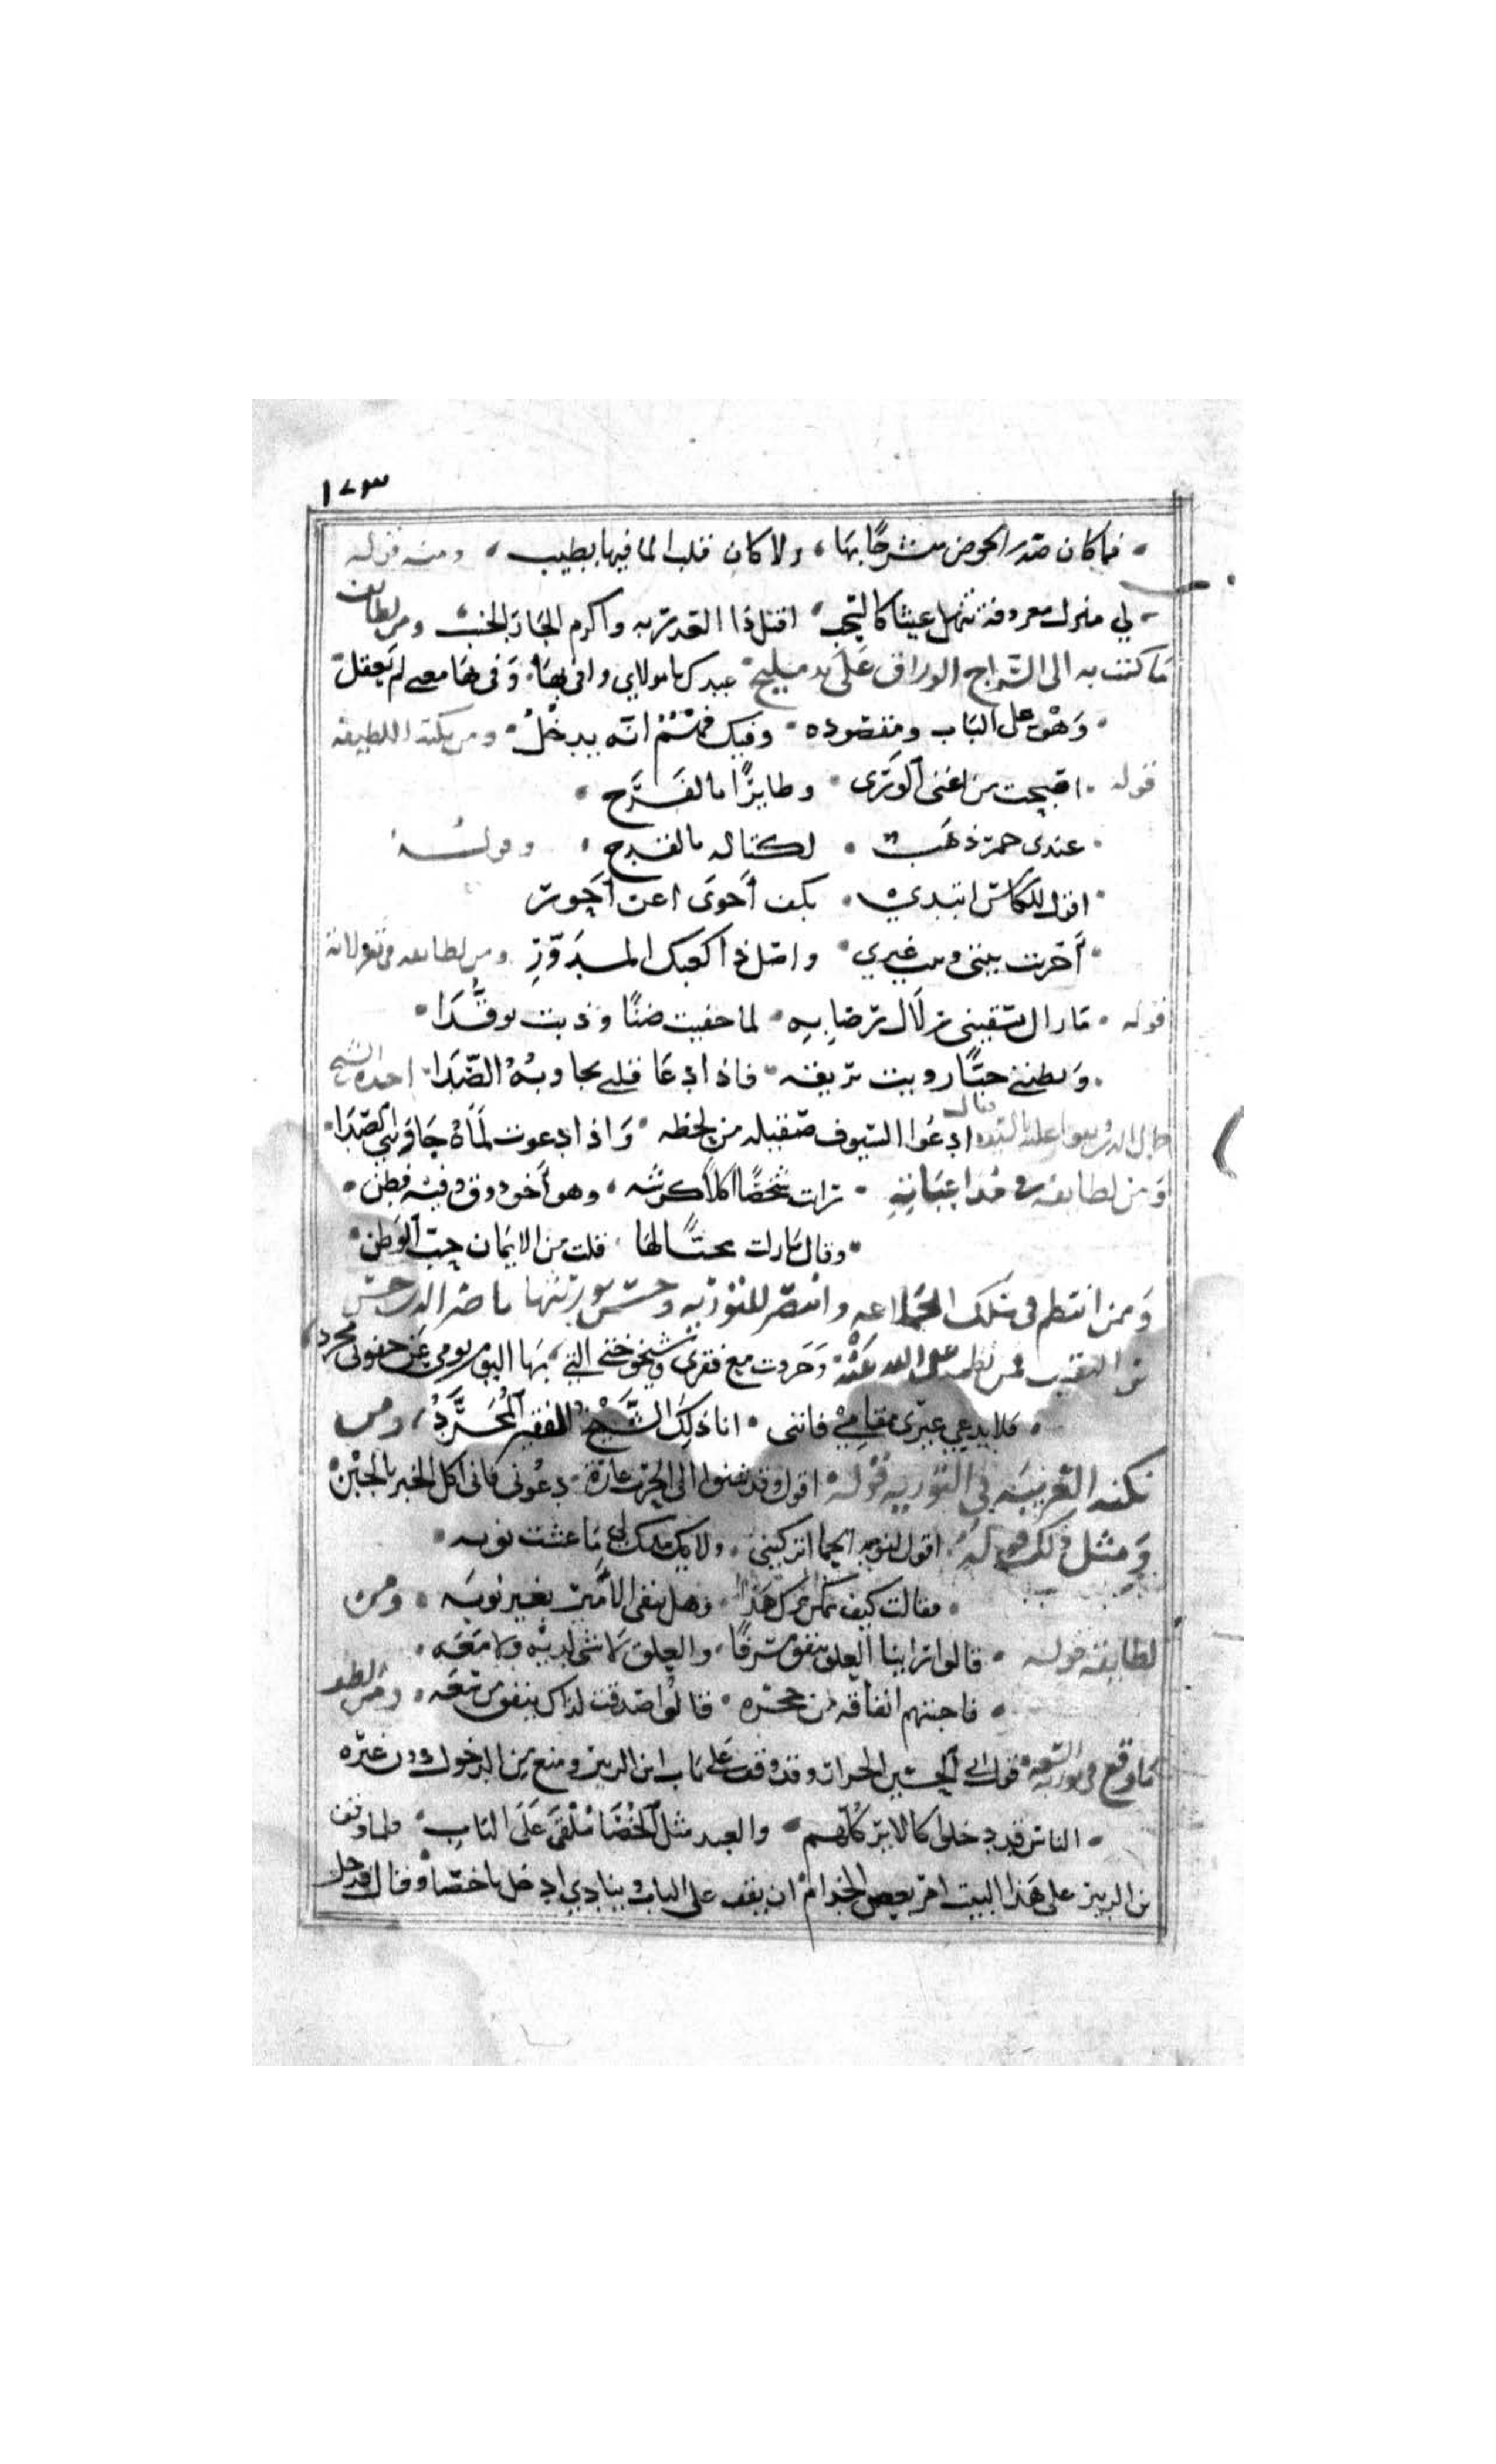 ١٧٣
فما كان صدر الحوض منشرحا بها ، ولا كان قلب الما فيها بطيب ، ومنه قوله
لي منزل معروفه ينهل غيثا كالسحب اقبل ذا العذر به واكرم الجار الجنب ومن لطائف
ما كتب به الى السراج الوراق على يد مليح عبدك يا مولاي وافى بها وفي معى لم يعقل
وهو على الباب ومقصوده وفيك ثم انه يدخل ومن نكته اللطيفة
قوله اصبحت من اغنى الورى وطايرا بالفرح
عندى خمر ذهب لكتاله بالقدح وقوله
اقول للكاس ابتدي بكف أحوى اعن أحور
أخرت بيتي وبيت غيري واصل ذا كعبك المدور ومن لطايفه في تغزلاته
قوله ما زال يسقيني زلال رضابه لما خفيت ضنا وذبت توقدا
ويظنني حيا رويت بريقه فاذا دعا قلبي يجاوبه الصدا اخذه الشيخ
فقال ادعوا السيوف صقيله من لحظه واذا دعوت لماه جاوبني الصدا
ومن لطايفه في مداعباته نزلت شخصا اكلا كرشه ، وهو أخو ذوق وفيه فطن
وقال ما زلت محبا لها قلت من الايمان حب الوطن
وممن انتظم في سلك الجماعه وانتصر للتوريه وحسن بزينتها ناصر الدين حسن
بن النقيب فمن نظمه وجردت مع فقرى وشيخوختي التي بها اليوم نومي عن جفوني مجرد
فلا يدعي غيري مقامي فانني انا ذلك الشيخ الفقير المجرد ، ومن
نكته الغريبه في التوريه قوله اقول وقد شنوا الى الحرب غارة دعوني فاني اكل الخبز بالجبن
ومثل ذلك قوله اقول لنوبه الحما اتركيني ولا يك منك لي ما عشت اوبه
فقالت كيف يمكن ترك هذا وهل يبقى الامير بغير نوبه ومن
لطايفه قوله قالوا ترا بنا العلق ينفق سرفا ، والعلق لا شي لديه ولا معه
فاجبتهم انفاقه من جحره قالوا صدقت لذاك ينفق من سعه
ما وقع في توريه السعة قول ابي الحسين الجزار وقد وقف على باب ابن الزبير ومنع من الدخول دون غيره
الناس قد دخلوا كالاير كلهم والعبد مثل الخصا ملقى على الباب ولما وقف
بن الزبير على هذا البيت امر بعض الخدام ان يقف على الباب وينادي ادخل يا خصا وقال قد دخل